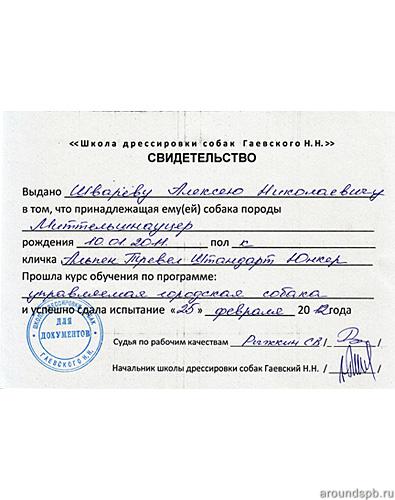 «Школа дрессировки собак Гаевского Н.Н.»
СВИДЕТЕЛЬСТВО
Выдано Швареву Алексею Николаевичу
в том, что принадлежащая ему(ей) собака породы
Миттельшнауцер
рождения 10.01.2011. пол к
кличка Альпен Тревел Штандарт Юнкер
Прошла курс обучения по программе:
управляемая городская собака
и успешно сдала испытание «25» февраля 2012 года
ШКОЛА ДРЕССИРОВКИ СОБАК
ДЛЯ ДОКУМЕНТОВ
ГАЕВСКОГО Н.Н.
Судья по рабочим качествам Рыжкин С.В. / /
Начальник школы дрессировки собак Гаевский Н.Н. / /
aroundspb.ru